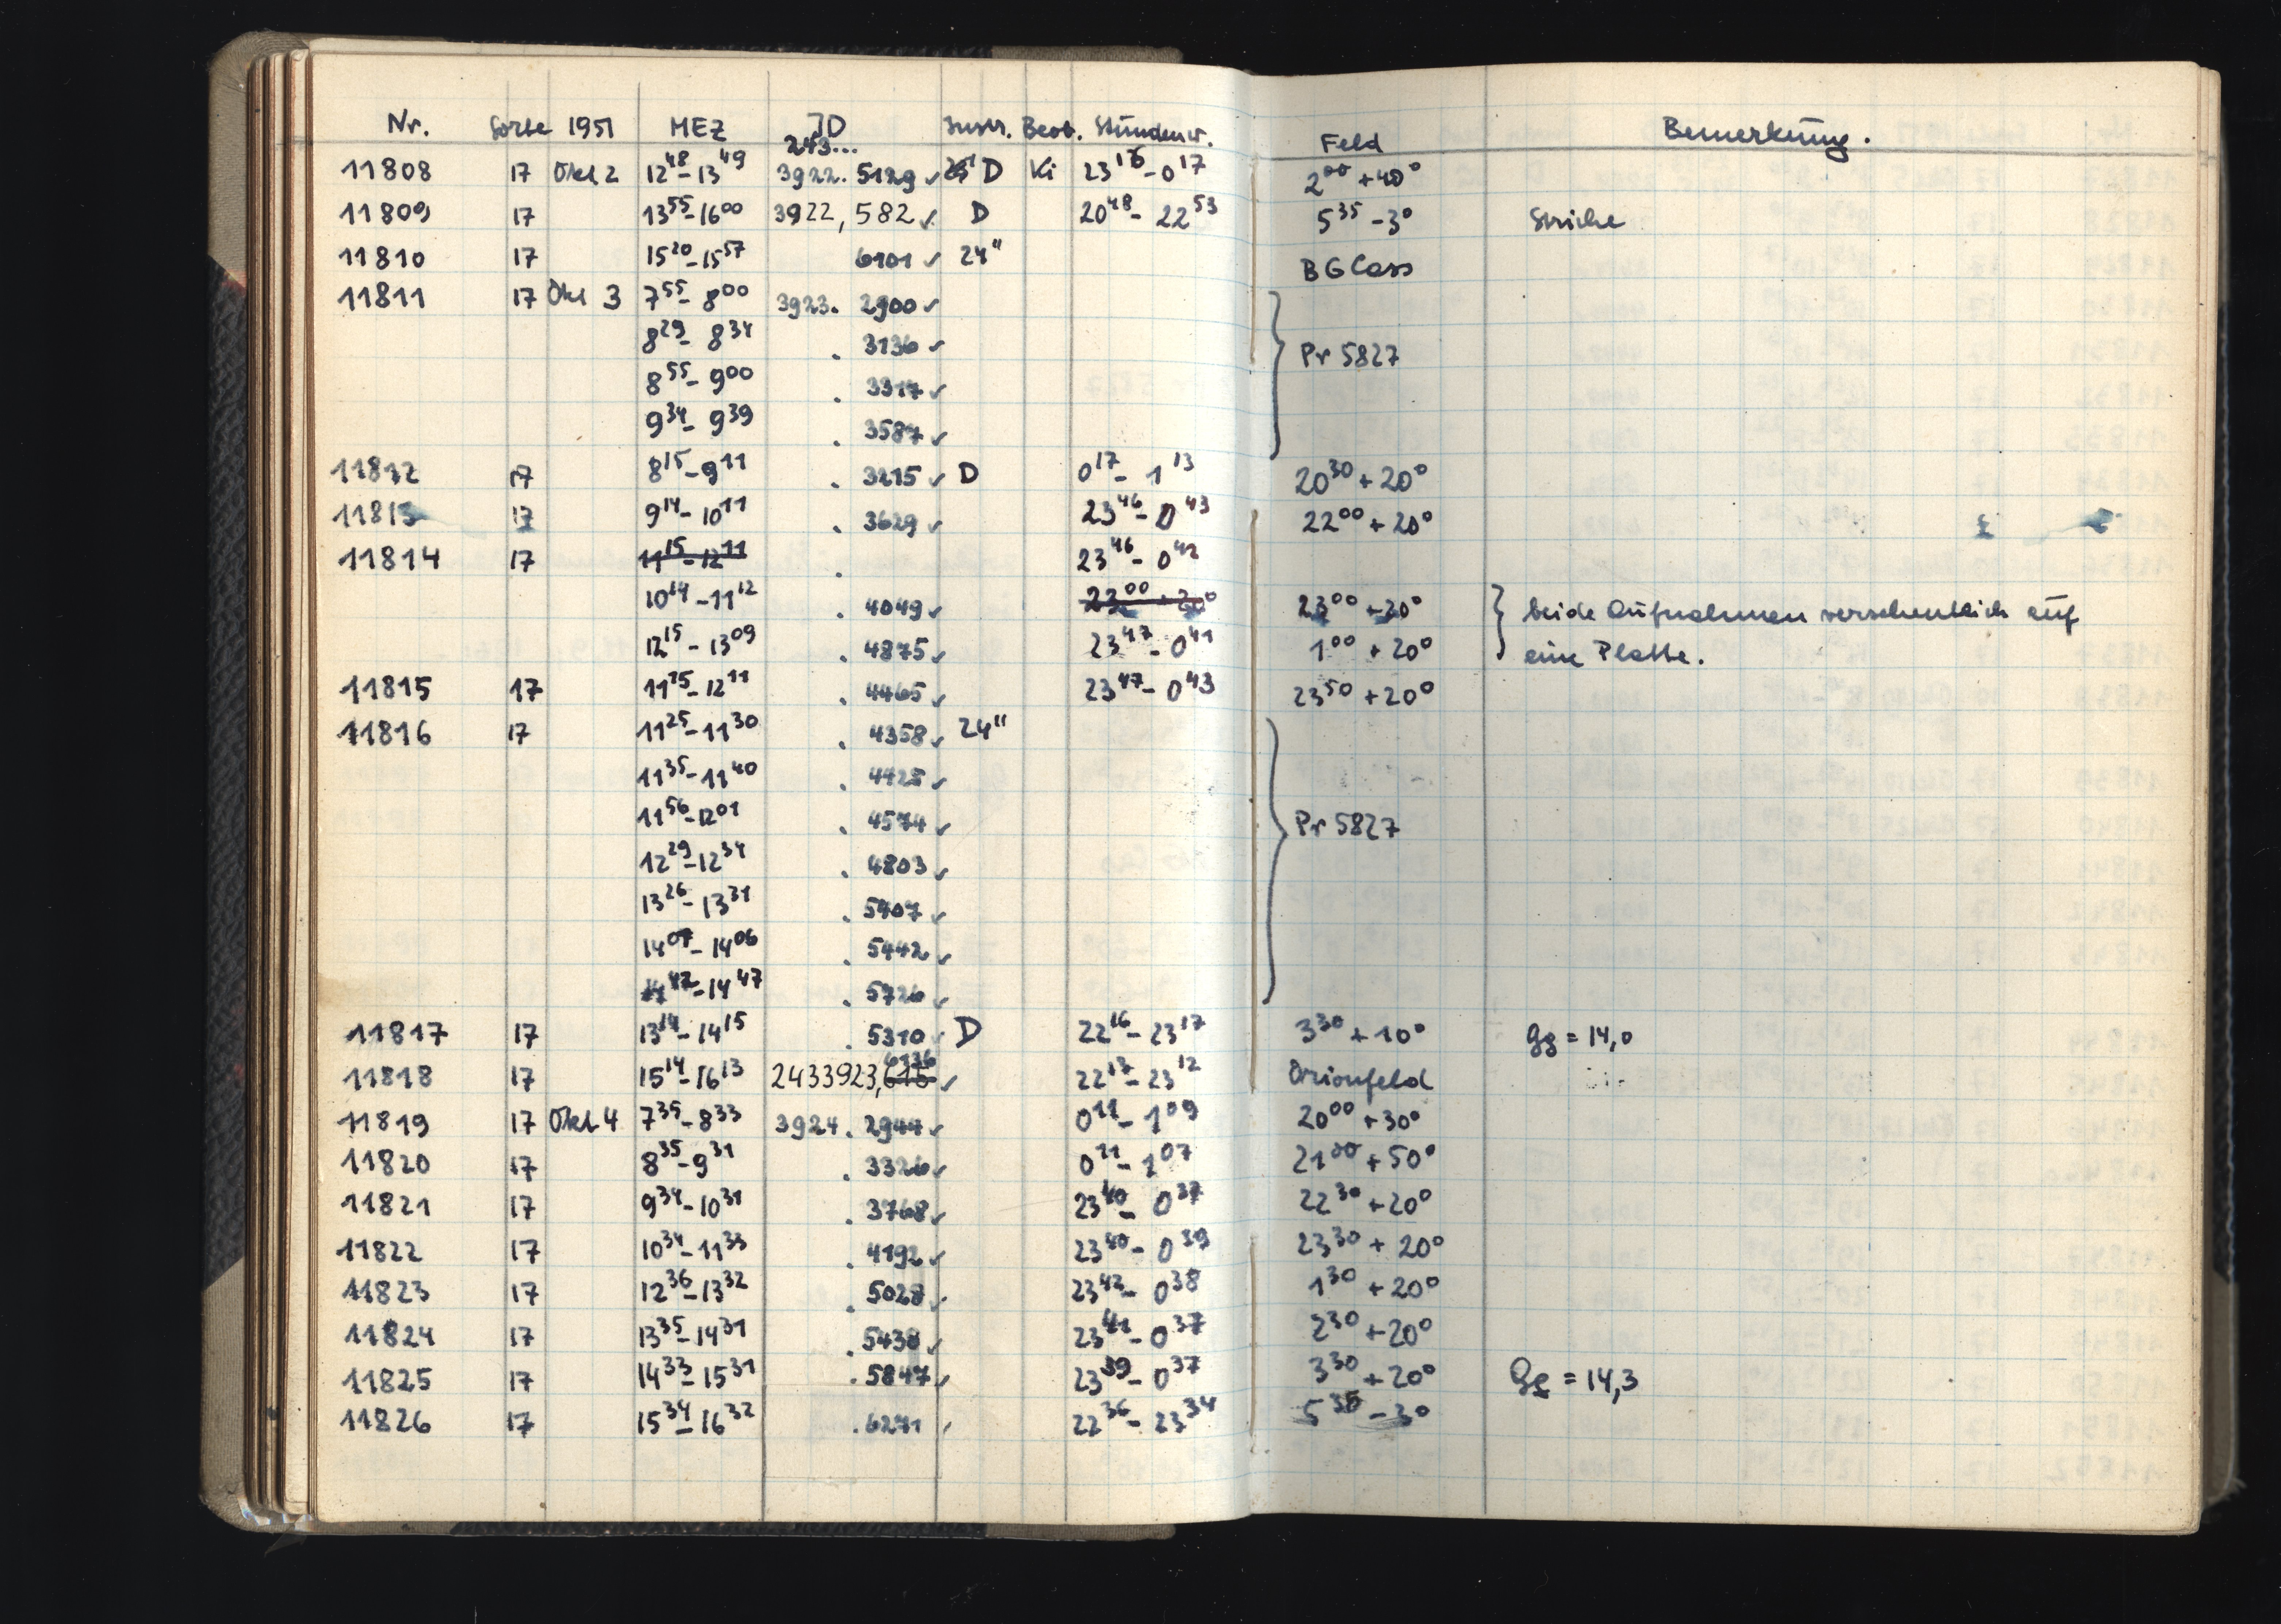 Nr. Sorte 1951 MEZ JD Instr. Beob. Stundenw. Feld Bemerkung.
243...
11808 17 Okt 2 12⁴⁸-13⁴⁹ 3922. 5129 ✓ D Ki 23¹⁶-0¹⁷ 2⁰⁰ +40°
11809 17 13⁵⁵-16⁰⁰ 3922, 582 ✓ D 20⁴⁸- 22⁵³ 5³⁵ -3° Striche
11810 17 15²⁰-15⁵⁷ 6101 ✓ 24" BG Cass
11811 17 Okt 3 7⁵⁵- 8⁰⁰ 3923. 2900 ✓
8²⁹- 8³⁴ . 3136 ✓ Pr 5827
8⁵⁵- 9⁰⁰ . 3317 ✓
9³⁴- 9³⁹ . 3587 ✓
11812 17 8¹⁵-9¹¹ . 3215 ✓ D 0¹⁷- 1¹³ 20³⁰ +20°
11813 17 9¹⁴- 10¹¹ . 3629 ✓ 23⁴⁶- 0⁴³ 22⁰⁰ +20°
11814 17 11¹⁵-12¹¹ . 23⁴⁶- 0⁴²
10¹⁴-11¹² . 4049 ✓ 23⁰⁰ +20° 23⁰⁰ +20° beide Aufnahmen versehentlich auf
12¹⁵- 13⁰⁹ . 4875 ✓ 23⁴⁷- 0⁴¹ 1⁰⁰ +20° eine Platte.
11815 17 11¹⁵-12¹¹ . 4465 ✓ 23⁴⁷- 0⁴³ 23⁵⁰ +20°
11816 17 11²⁵-11³⁰ . 4358 ✓ 24"
11³⁵-11⁴⁰ . 4428 ✓
11⁵⁶-12⁰¹ . 4574 ✓ Pr 5827
12²⁹-12³⁴ . 4803 ✓
13²⁶-13³¹ . ✓
14⁰¹-14⁰⁶ . 5442 ✓
14⁴²-14⁴⁷ . 5726 ✓
11817 17 13¹⁴-14¹⁵ . 5310 ✓ D 22¹⁶-23¹⁷ 3³⁰ +10° Gg = 14,0
6136
11818 17 15¹⁴-16¹³ 2433923,615 ✓ 22¹³-23¹² Orionfeld
11819 17 Okt 4 7³⁵-8³³ 3924. 2944 ✓ 0¹¹- 1⁰⁹ 20⁰⁰ +30°
11820 17 8³⁵-9³¹ . 3326 ✓ 0¹¹- 1⁰⁷ 21⁰⁰ +50°
11821 17 9³⁴-10³¹ . 3768 ✓ 23⁴⁰- 0³⁷ 22³⁰ +20°
11822 17 10³⁴-11³³ . 4192 ✓ 23⁴⁰- 0³⁹ 23³⁰ + 20°
11823 17 12³⁶-13³² . 5028 ✓ 23⁴²- 0³⁸ 1³⁰ +20°
11824 17 13³⁵-14³¹ . 5438 ✓ 23⁴¹- 0³⁷ 2³⁰ +20°
11825 17 14³³-15³¹ . 5847 ✓ 23³⁹- 0³⁷ 3³⁰ +20° Gg = 14,3
11826 17 15³⁴-16³² . 6271 ✓ 22³⁶- 23³⁴ 5³⁵ -3°